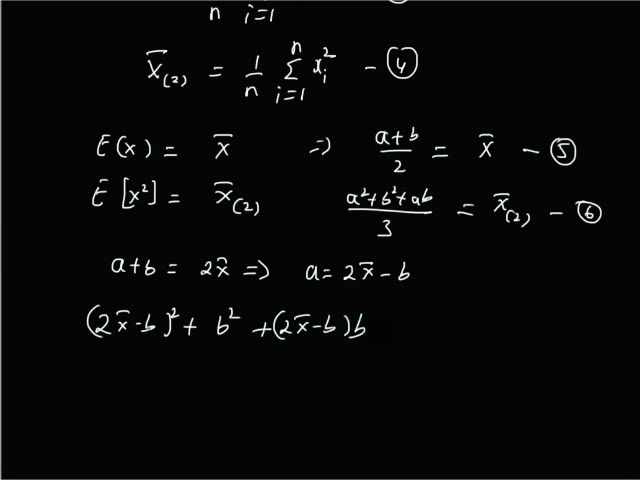 n i=1
x̄₍₂₎ = 1/n Σⁿᵢ₌₁ xᵢ² - ④
E(x) = x̄ => (a+b)/2 = x̄ - ⑤
E[x²] = x̄₍₂₎ (a²+b²+ab)/3 = x̄₍₂₎ - ⑥
a+b = 2x̄ => a = 2x̄ - b
(2x̄-b)² + b² + (2x̄-b)b